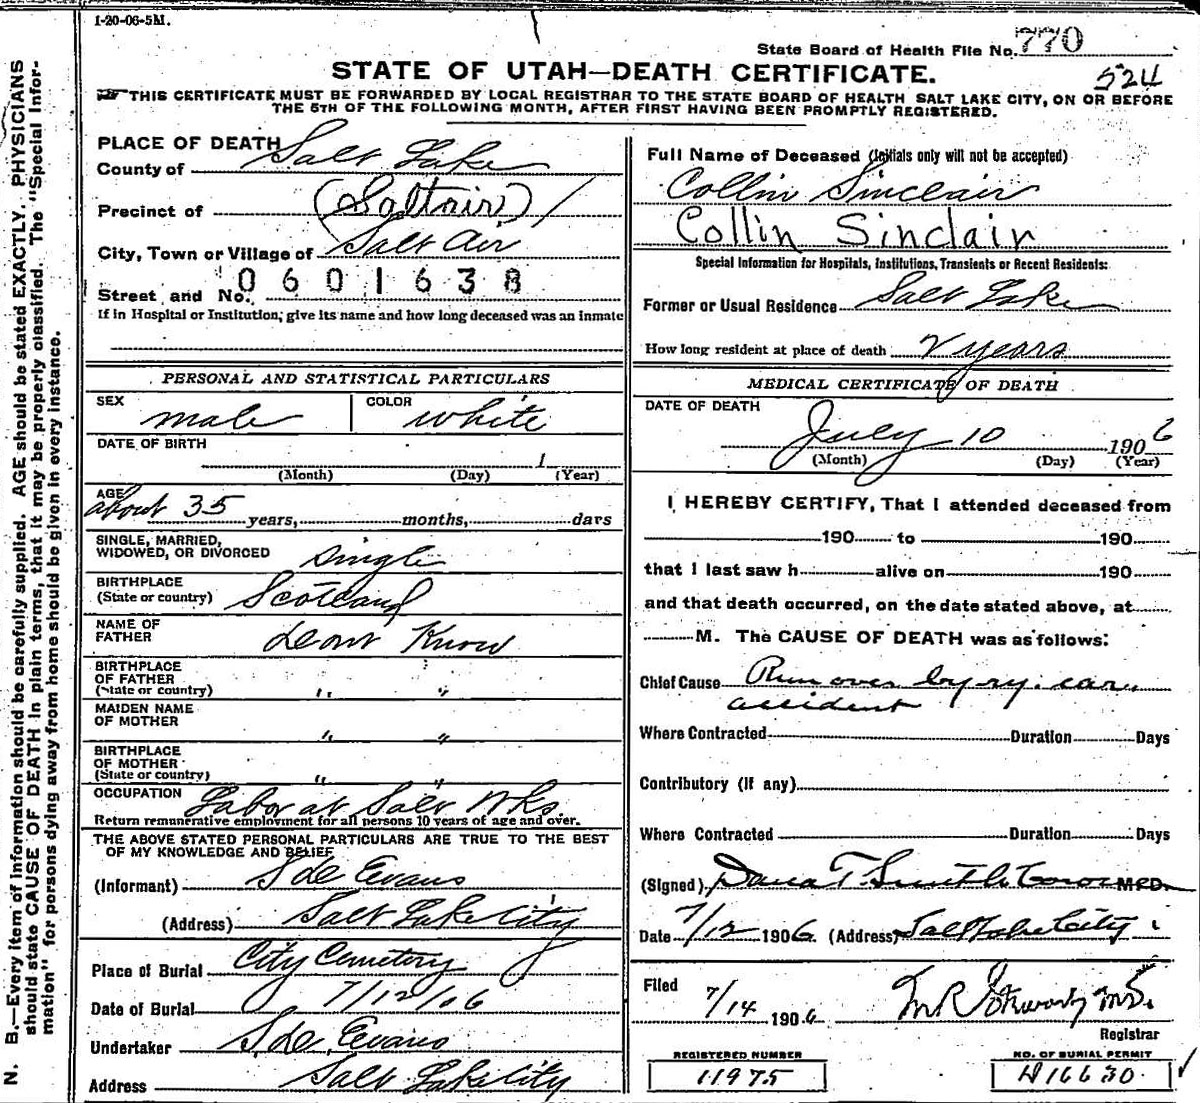 1-20-06-5M.
State Board of Health File No. 770
524
STATE OF UTAH—DEATH CERTIFICATE.
THIS CERTIFICATE MUST BE FORWARDED BY LOCAL REGISTRAR TO THE STATE BOARD OF HEALTH SALT LAKE CITY, ON OR BEFORE
THE 5TH OF THE FOLLOWING MONTH, AFTER FIRST HAVING BEEN PROMPTLY REGISTERED.
N. B.—Every item of information should be carefully supplied. AGE should be stated EXACTLY. PHYSICIANS
should state CAUSE OF DEATH in plain terms, that it may be properly classified. The "Special Infor-
mation" for persons dying away from home should be given in every instance.
PLACE OF DEATH
County of Salt Lake
Precinct of (Saltair)
City, Town or Village of Salt Air
0601638
Street and No.
If in Hospital or Institution, give its name and how long deceased was an inmate
PERSONAL AND STATISTICAL PARTICULARS
SEX male COLOR white
DATE OF BIRTH 1
(Month) (Day) (Year)
AGE about 35 years, months, days
SINGLE, MARRIED,
WIDOWED, OR DIVORCED single
BIRTHPLACE
(State or country) Scotland
NAME OF
FATHER dont Know
BIRTHPLACE
OF FATHER
(State or country) " "
MAIDEN NAME
OF MOTHER " "
BIRTHPLACE
OF MOTHER
(State or country) " "
OCCUPATION Labor at Salt Wks.
Return remunerative employment for all persons 10 years of age and over.
THE ABOVE STATED PERSONAL PARTICULARS ARE TRUE TO THE BEST
OF MY KNOWLEDGE AND BELIEF
(Informant) S de Evans
(Address) Salt Lake City
Place of Burial City Cemetery
Date of Burial 7/12/06
Undertaker S. de Evans
Address Salt Lake City
Full Name of Deceased (Initials only will not be accepted)
Collin Sinclair
Collin Sinclair
Special Information for Hospitals, Institutions, Transients or Recent Residents:
Former or Usual Residence Salt Lake
How long resident at place of death 2 years
MEDICAL CERTIFICATE OF DEATH
DATE OF DEATH
July 10 1906
(Month) (Day) (Year)
I HEREBY CERTIFY, That I attended deceased from
190 to 190
that I last saw h alive on 190
and that death occurred, on the date stated above, at
M. The CAUSE OF DEATH was as follows:
Chief Cause Run over by ry. car.
accident
Where Contracted Duration Days
Contributory (if any)
Where Contracted Duration Days
(Signed) Dana T. Smith M.D.
Date 7/12 1906. (Address) Salt Lake City
Filed 7/14 1906 M.D.
Registrar
REGISTERED NUMBER
11975
NO. OF BURIAL PERMIT
16630